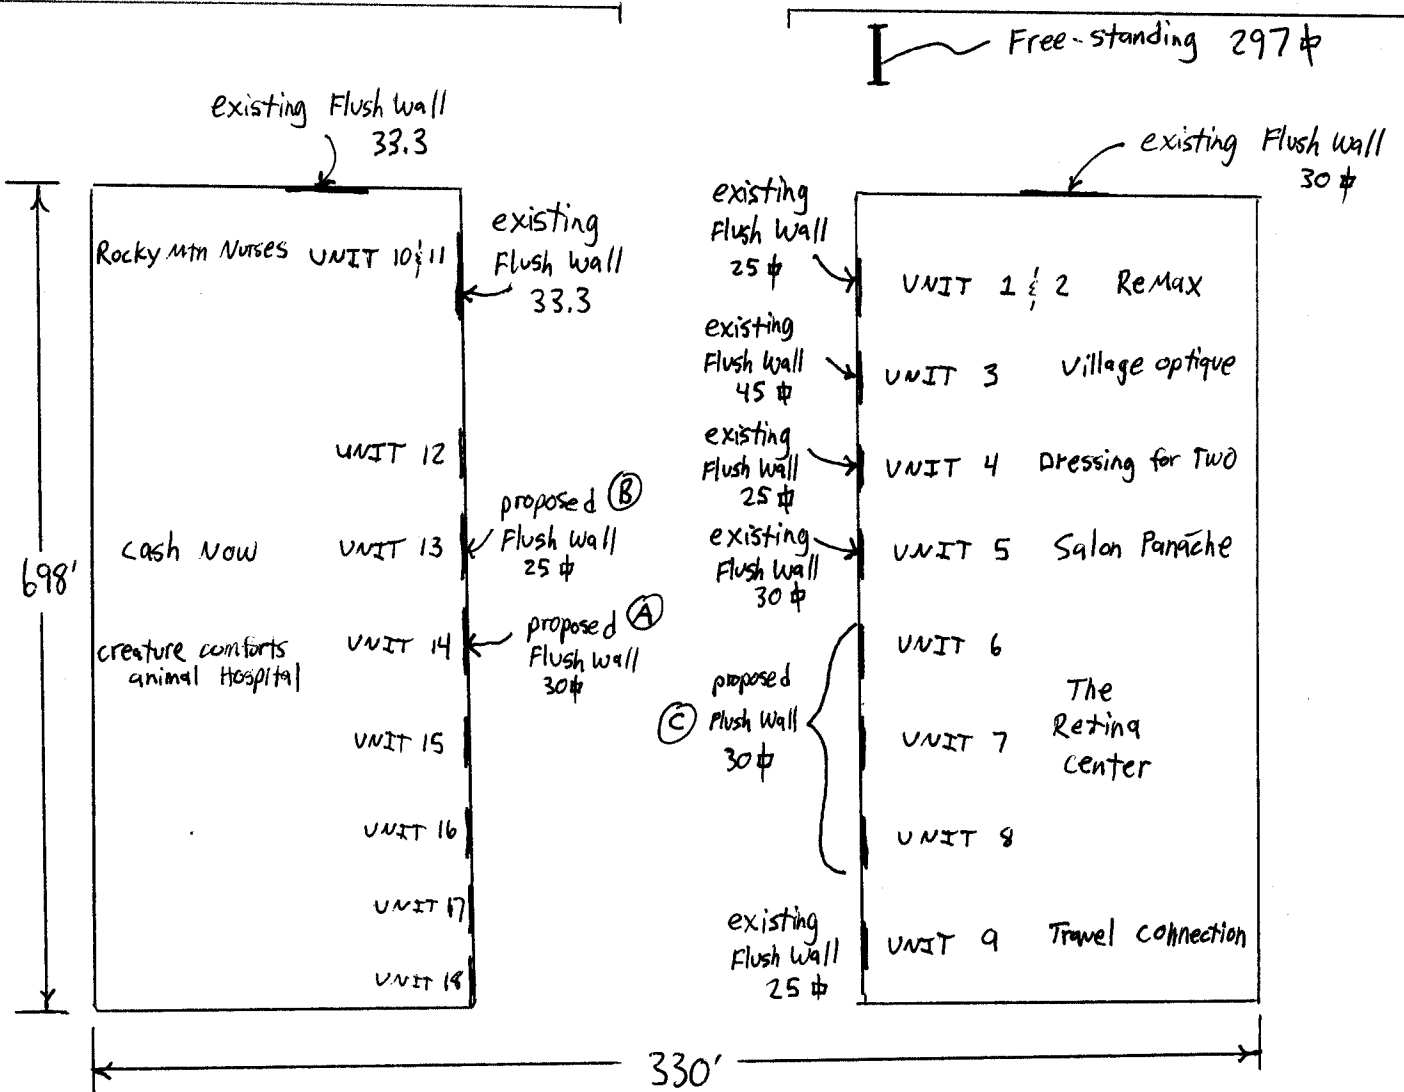 Free-standing 297 ⏍
existing Flush Wall
33.3
existing Flush Wall
30 ⏍
Rocky Mtn Nurses UNIT 10 & 11
existing
Flush Wall
33.3
UNIT 12
cash Now UNIT 13
proposed Ⓑ
Flush Wall
25 ⏍
creature comforts
animal Hospital
UNIT 14
proposed Ⓐ
Flush Wall
30 ⏍
UNIT 15
UNIT 16
UNIT 17
UNIT 18
698'
existing
Flush Wall
25 ⏍
UNIT 1 & 2 ReMax
existing
Flush Wall
45 ⏍
UNIT 3 Village optique
existing
Flush Wall
25 ⏍
UNIT 4 Dressing for Two
existing
Flush Wall
30 ⏍
UNIT 5 Salon Panache
UNIT 6
proposed
Ⓒ Flush Wall
30 ⏍
UNIT 7
The
Retina
center
UNIT 8
existing
Flush Wall
25 ⏍
UNIT 9 Travel connection
330'